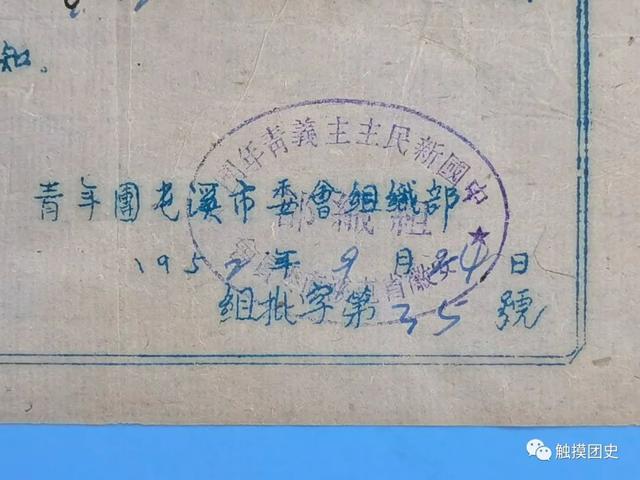 知。
青年團屯溪市委會組織部
195 年9月24日
组批字第35號
中國新民主主義青年團
組織部
安徽省
触摸团史